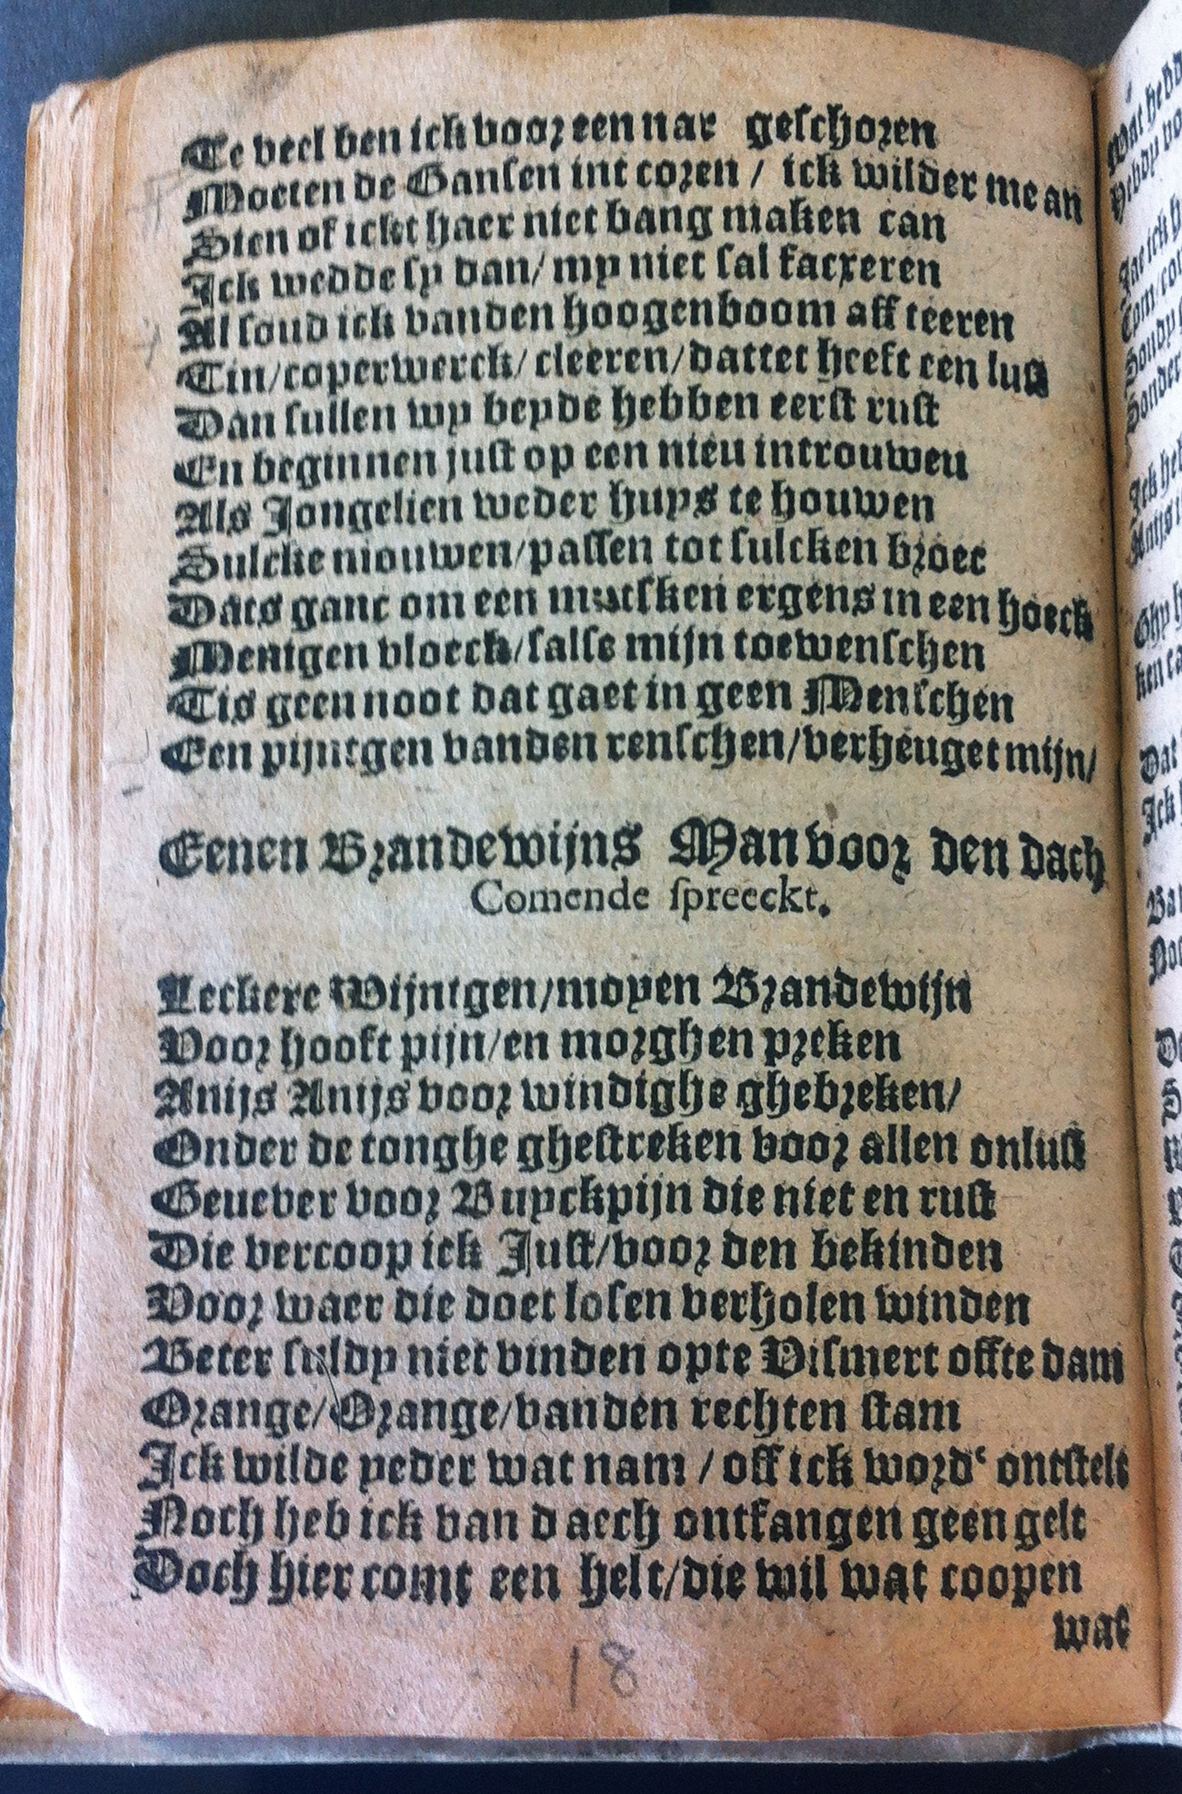 Te veel ben ick voor een nar geschoren
Moeten de Gansen int coren / ick wilder me an
Sien of ickt haer niet bang maken can
Ick wedde sy dan/ my niet sal facxeren
Al soud ick vanden hoogenboom aff teeren
Tin/coperwerck/ cleeren/dattet heeft een lust
Dan sullen wy beyde hebben eerst rust
En beginnen just op een nieu introuwen
Als Jongelien weder huys te houwen
Sulcke mouwen/passen tot sulcken broec
Dats ganc om een mutsken ergens in een hoeck
Menigen vloeck/salse mijn toewenschen
Tis geen noot dat gaet in geen Menschen
Een pijntgen vanden renschen/verheuget mijn/
Eenen Brandewijns Man voor den dach
Comende spreeckt.
Leckere Wijntgen/moyen Brandewijn
Voor hooft pijn/en morghen preken
Anijs Anijs voor windighe ghebreken/
Onder de tonghe ghestreken voor allen onlust
Geuever voor Buyckpijn die niet en rust
Die vercoop ick Just/voor den bekinden
Voor waer die doet losen verholen winden
Beter suldy niet vinden opte Vismert offte dam
Orange/Orange/vanden rechten stam
Ick wilde yeder wat nam / off ick word‘ ontstelt
Noch heb ick van daech ontfangen geen gelt
Doch hier comt een helt/die wil wat coopen
wat
18